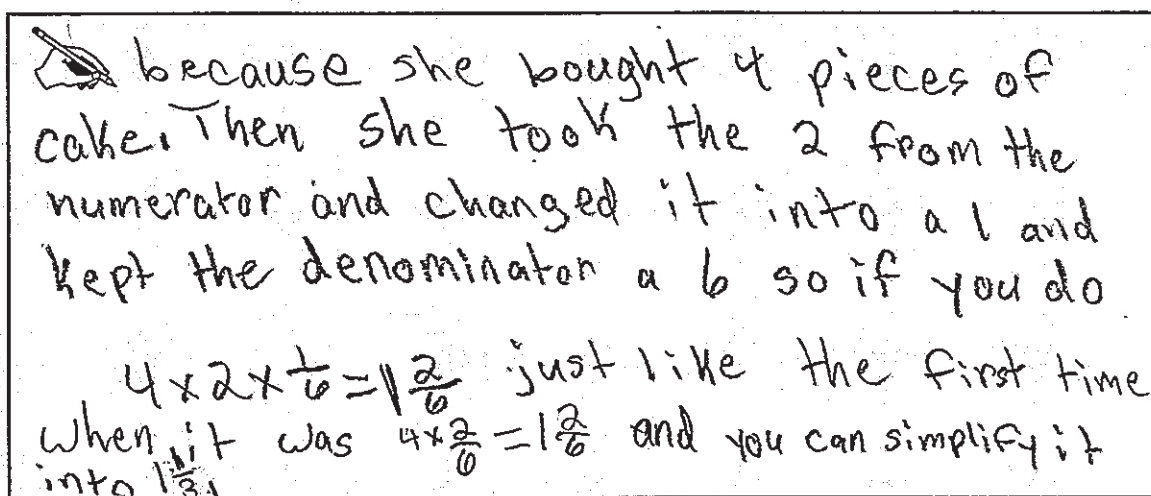 because she bought 4 pieces of
cake. Then she took the 2 from the
numerator and changed it into a 1 and
kept the denominator a 6 so if you do
4 x 2 x 1/6 = 1 2/6 just like the first time
when it was 4 x 2/6 = 1 2/6 and you can simplify it
into 1 1/3.